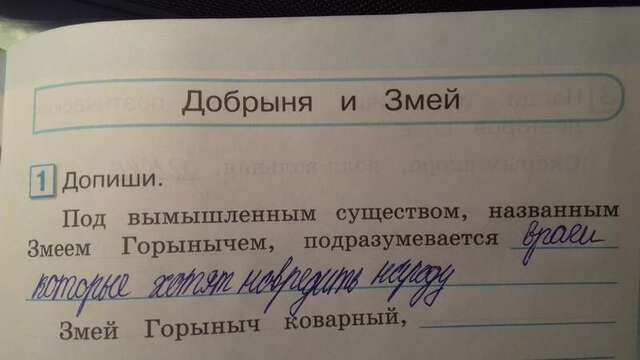 Добрыня и Змей
1 Допиши.
Под вымышленным существом, названным
Змеем Горынычем, подразумевается враги
которые хотят навредить народу
Змей Горыныч коварный,